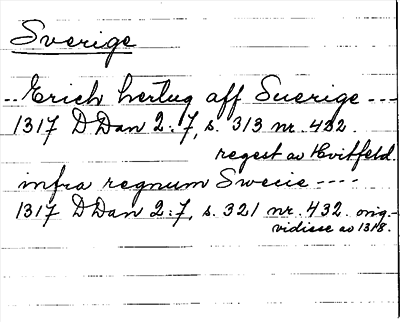 Sverige
.. Erich hertug aff Suerige ---
1317 DDan 2:7, s. 313 nr. 432.
regest av Hvitfeld.
infra regnum Swecie ----
1317 DDan 2:7, s. 321 nr. 432. orig.-
vidisse av 1318.